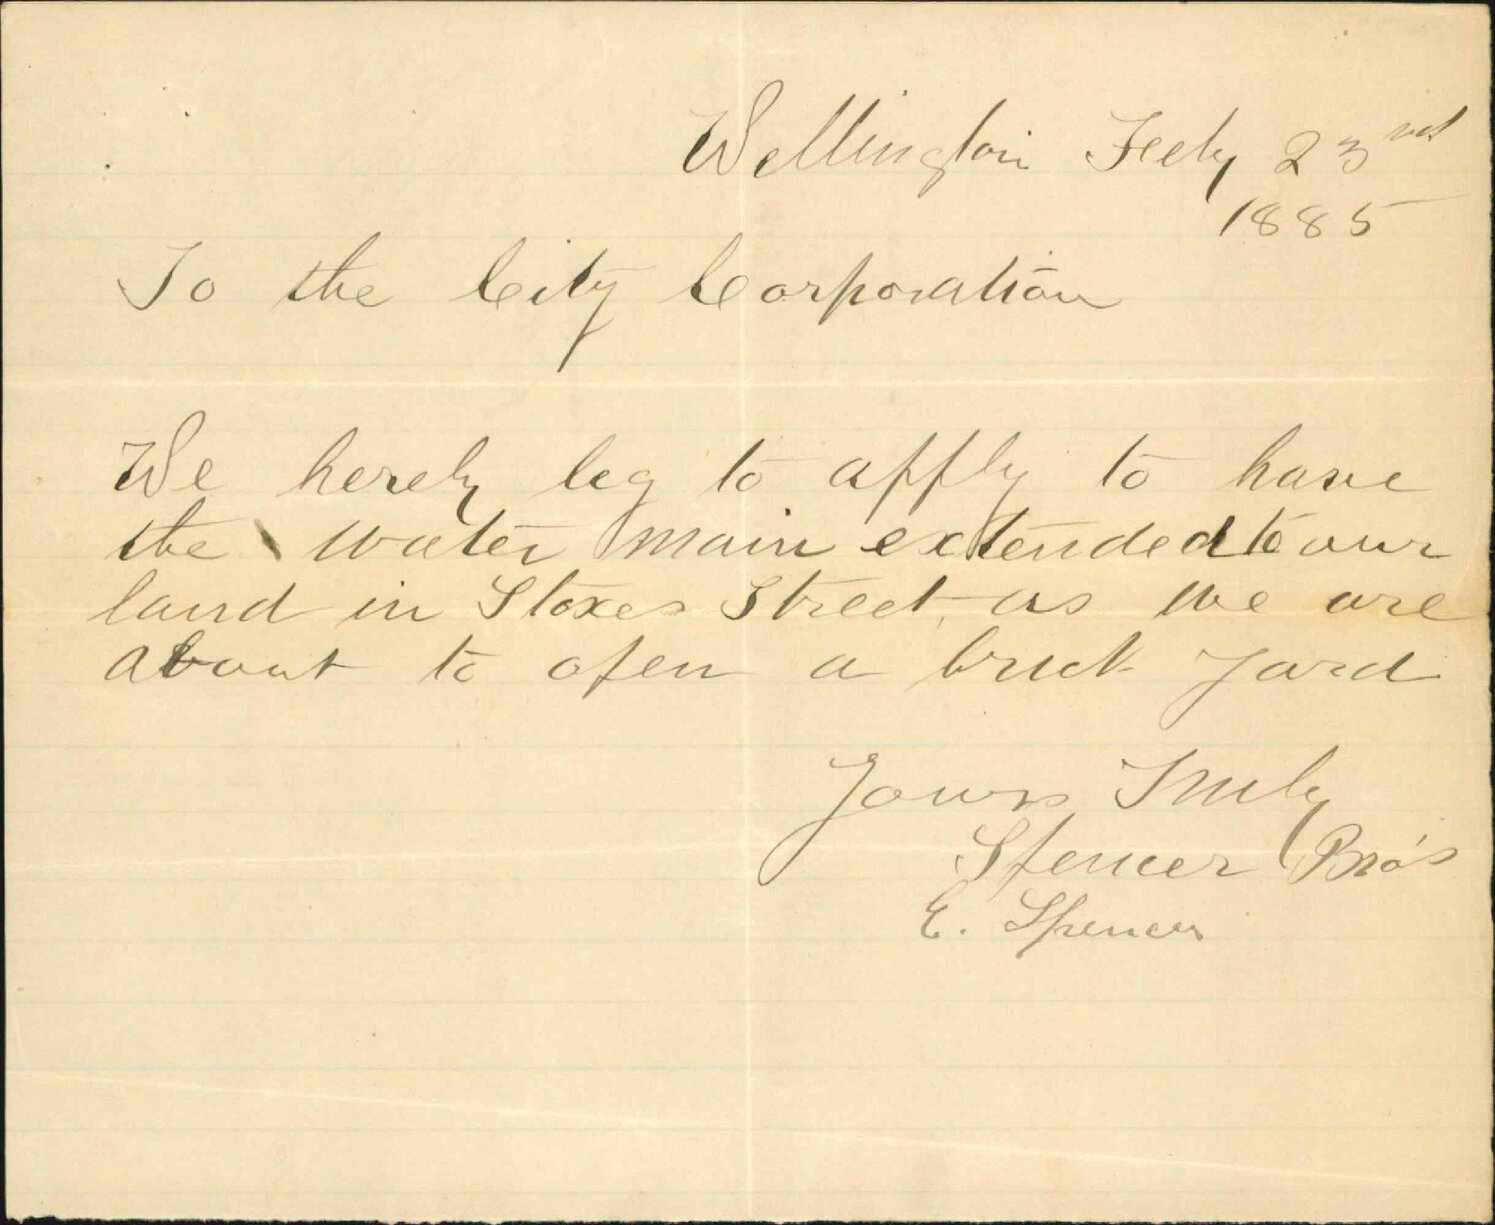 Wellington Feby 23rd
1885
To the City Corporation
We hereby beg to apply to have
the water main extended to our
land in Stoxes Street, as we are
about to open a brick yard
Yours Truly
Spencer Bro's
E. Spencer